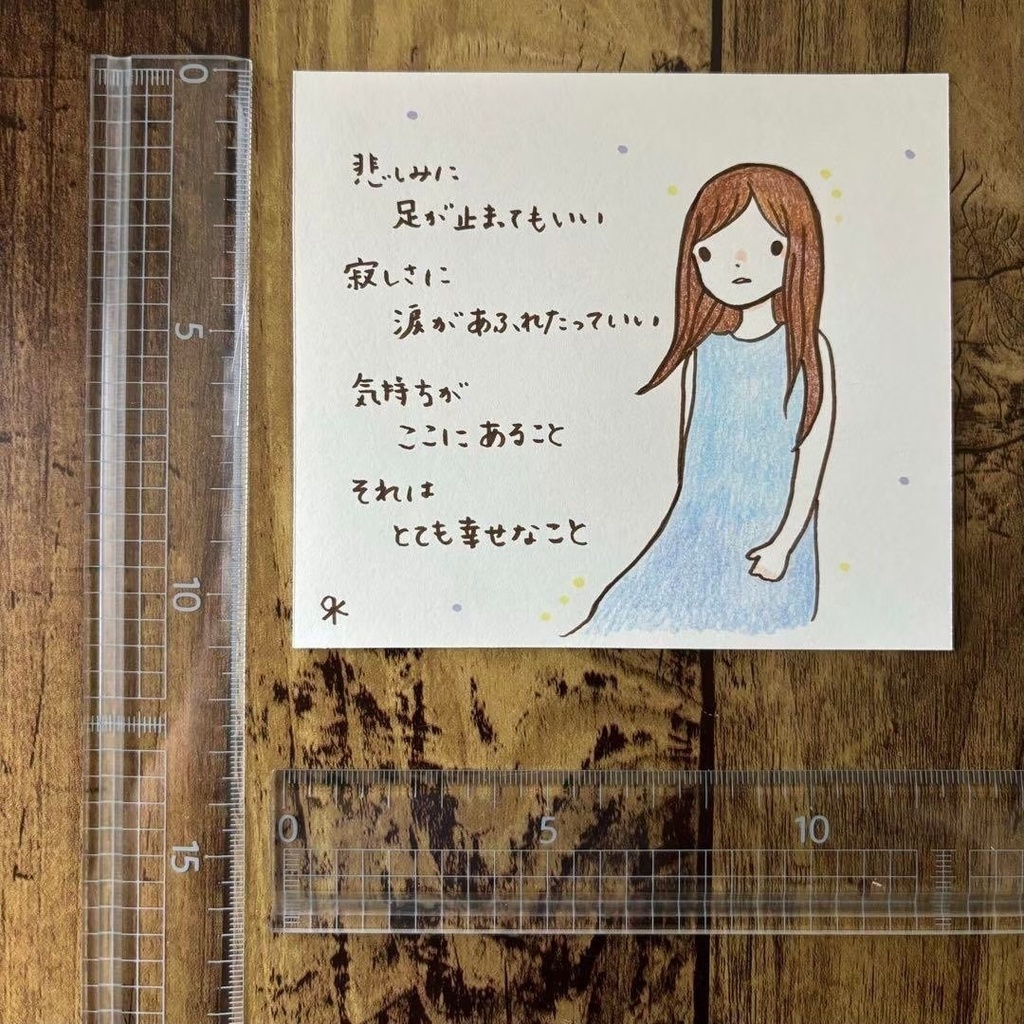 悲しみに
足が止まってもいい
寂しさに
涙があふれたっていい
気持ちが
ここにあること
それは
とても幸せなこと
0
5
10
15
0
5
10